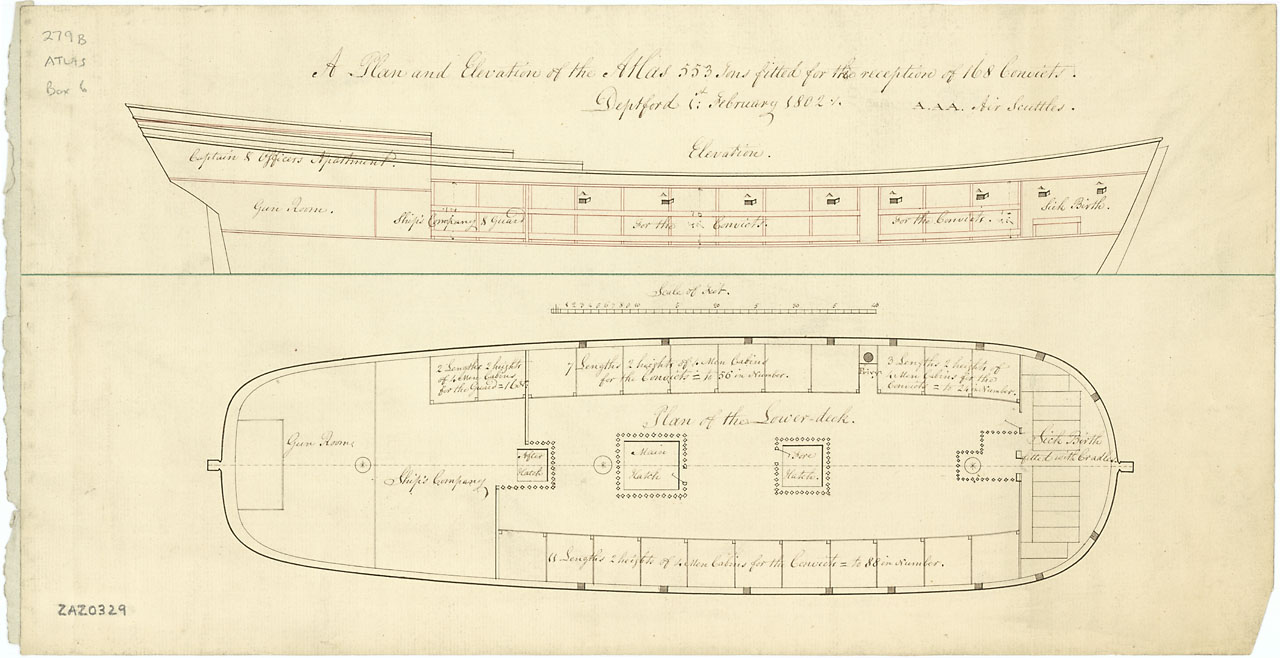 279B
ATLAS
Box 6
A Plan and Elevation of the Atlas 553 Tons fitted for the reception of 168 Convicts.
Deptford 1st February 1802.
A.A.A. Air Scuttles.
Elevation.
Captain & Officers Apartment.
Gun Room.
Ship's Company & Guard
For the Convicts.
For the Convicts.
Sick Birth.
Scale of Feet.
2 Lengths 2 heights
of 4 Men Cabins
for the Guard = 16
7 Lengths 2 heights of 4 Men Cabins
for the Convicts = to 56 in Number.
Privy
3 Lengths 2 heights of
4 Men Cabins for the
Convicts = to 24 in Number.
Plan of the Lower-deck.
Gun Room
Ship's Company
After
Hatch
Main
Hatch
Fore
Hatch.
Sick Birth
fitted with Cradles
11 Lengths 2 heights of 4 Men Cabins for the Convicts = to 88 in Number.
ZAZ0329